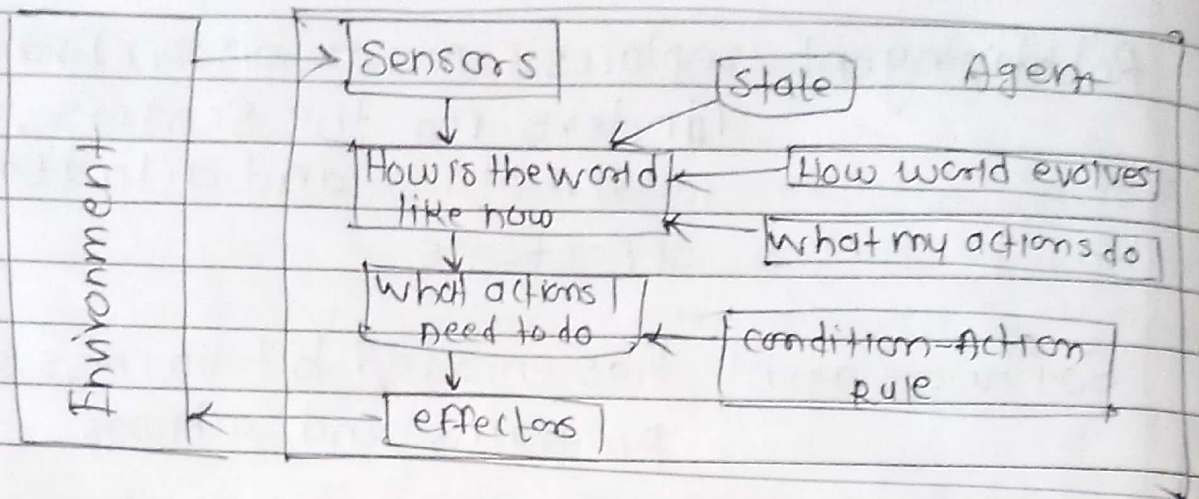 Environment
Sensors
State
Agent
How is the world
like now
How world evolves
What my actions do
What actions
need to do
condition-Action
Rule
effectors